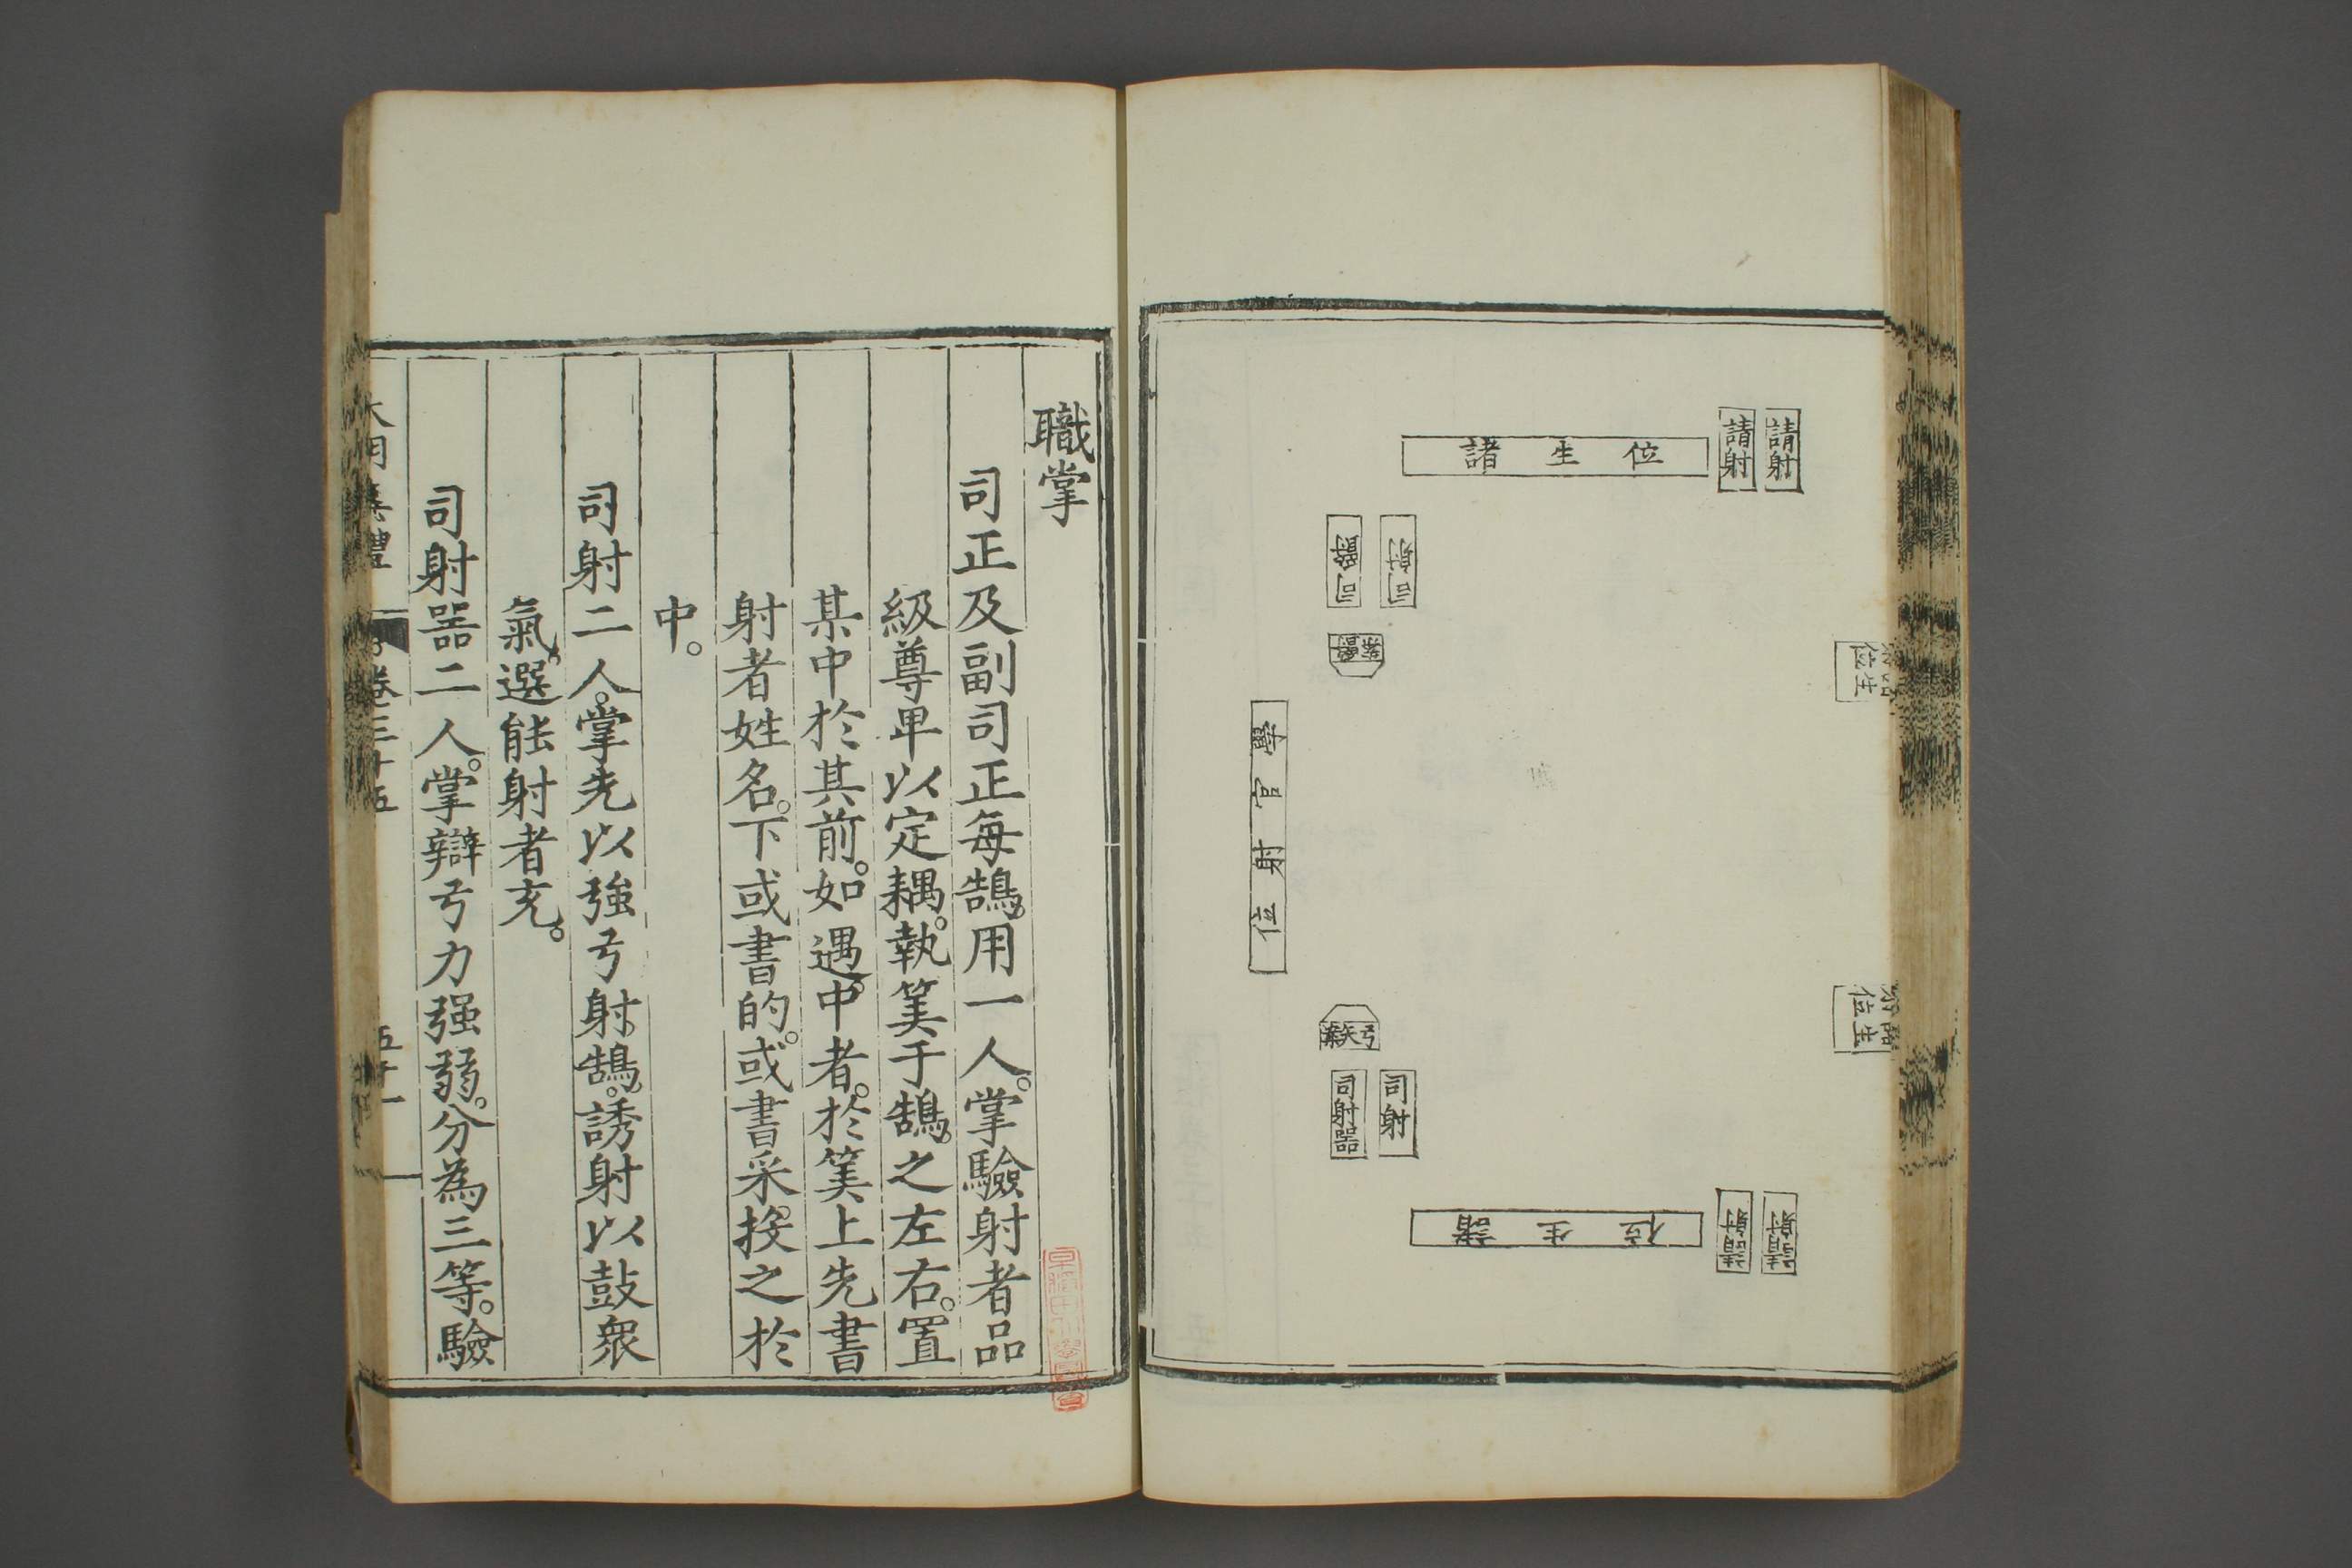 請射
請射
諸生位
司射
司射器
學官射位
弓矢案
司射
司射器
請射
請射
諸生位
位生
位生
職掌
司正及副司正每鵠用一人掌驗射者品
級尊卑以定耦執筭于鵠之左右置
某中於其前如遇中者於筭上先書
射者姓名下或書的或書采投之於
中
司射二人掌先以強弓射鵠誘射以鼓衆
氣選能射者充
司射器二人掌辯弓力强弱分為三等驗
大明集禮 卷三十五 五十一